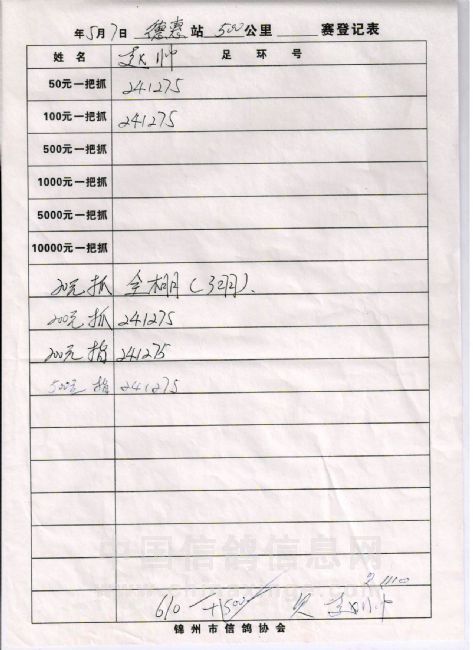 年5月7日 德惠 站 500 公里 赛登记表
姓名 赵帅 足环号
50元一把抓 241275
100元一把抓 241275
500元一把抓
1000元一把抓
5000元一把抓
10000元一把抓
20元抓 全棚(3羽).
200元抓 241275
200元指 241275
500元指 241275
中国信鸽信息网
610 +1500 欠 赵帅
锦州市信鸽协会